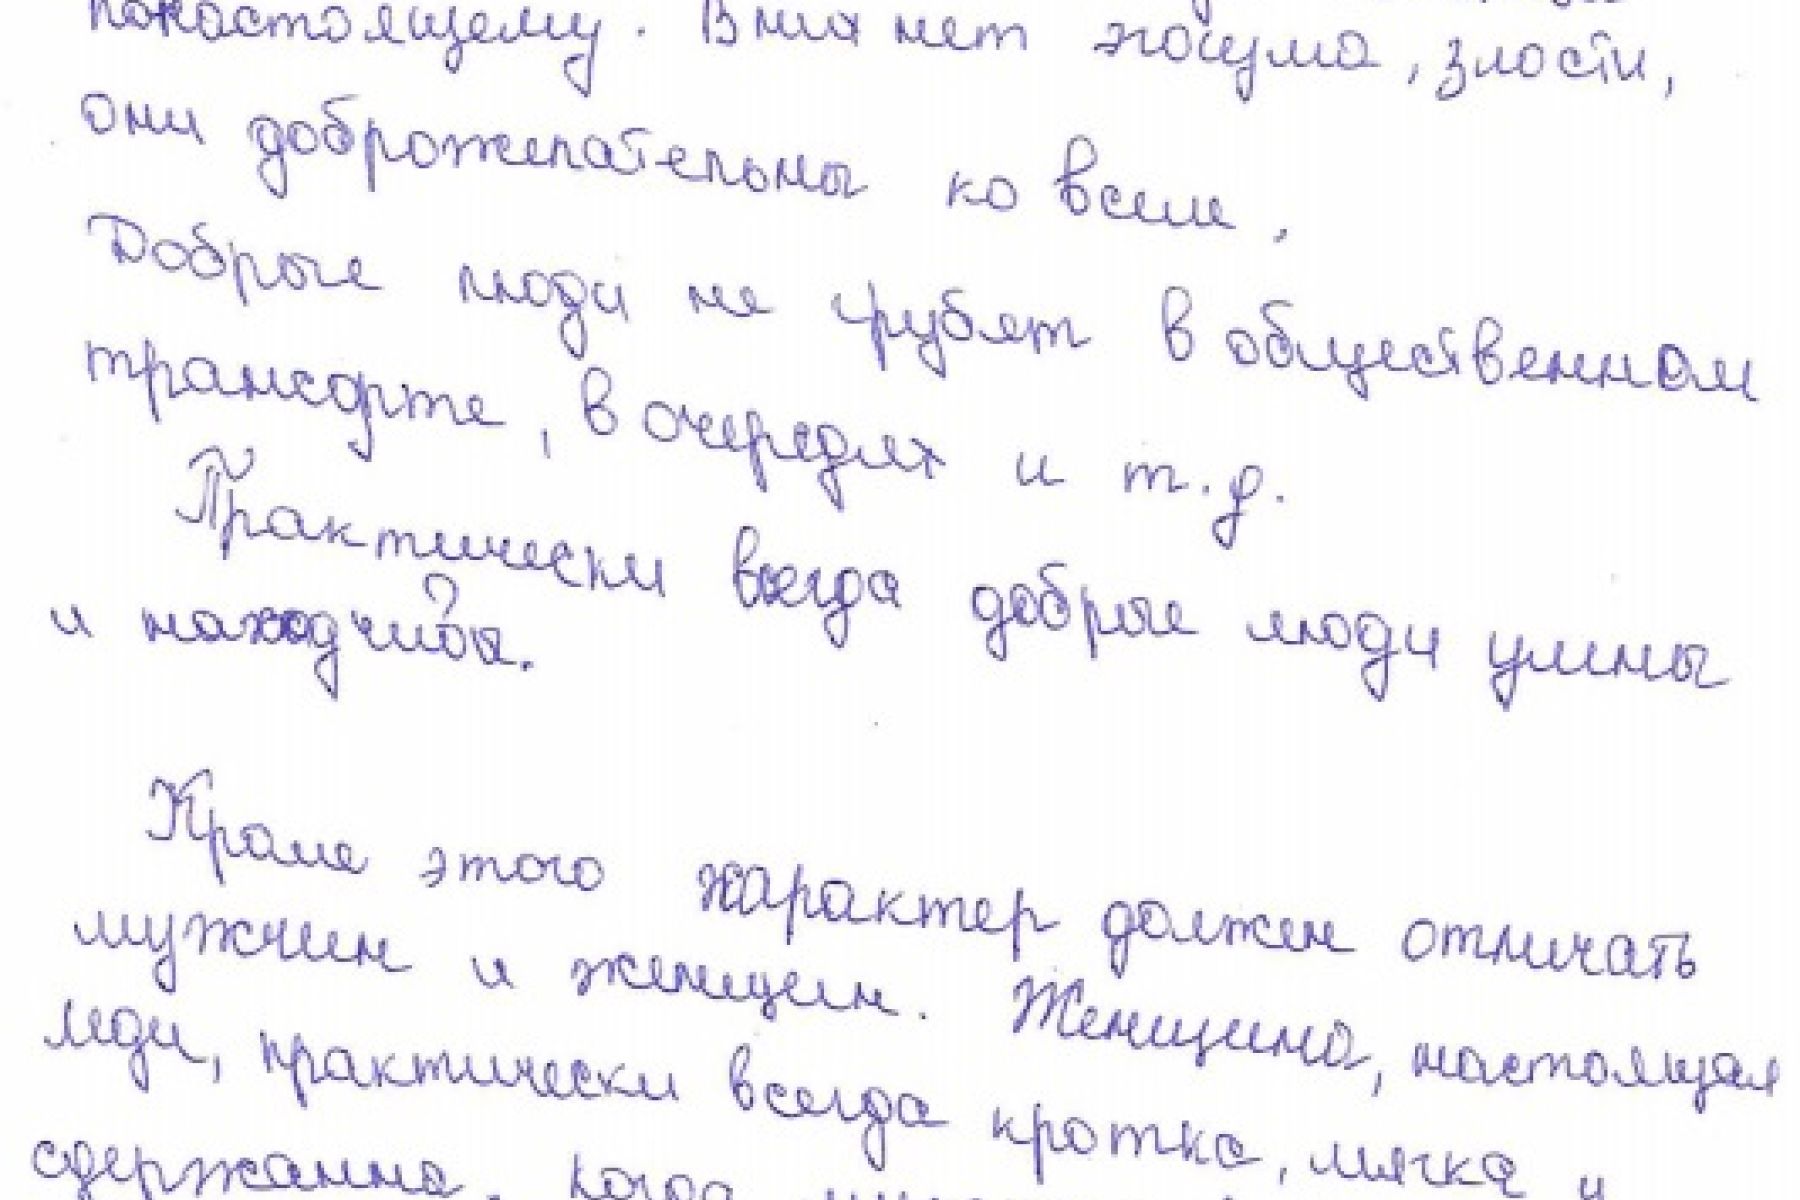 понастоящему. В них нет эгоизма, злости,
они доброжелательны ко всем,
Добрые люди не грубят в общественном
трансорте, в очередях и т.д.
Практически всегда добрые люди умны
и находчивы.
Кроме этого характер должен отличать
мужчин и женщин. Женщина, настоящая
леди, практически всегда кротка, мягка и
сдержанна, когда